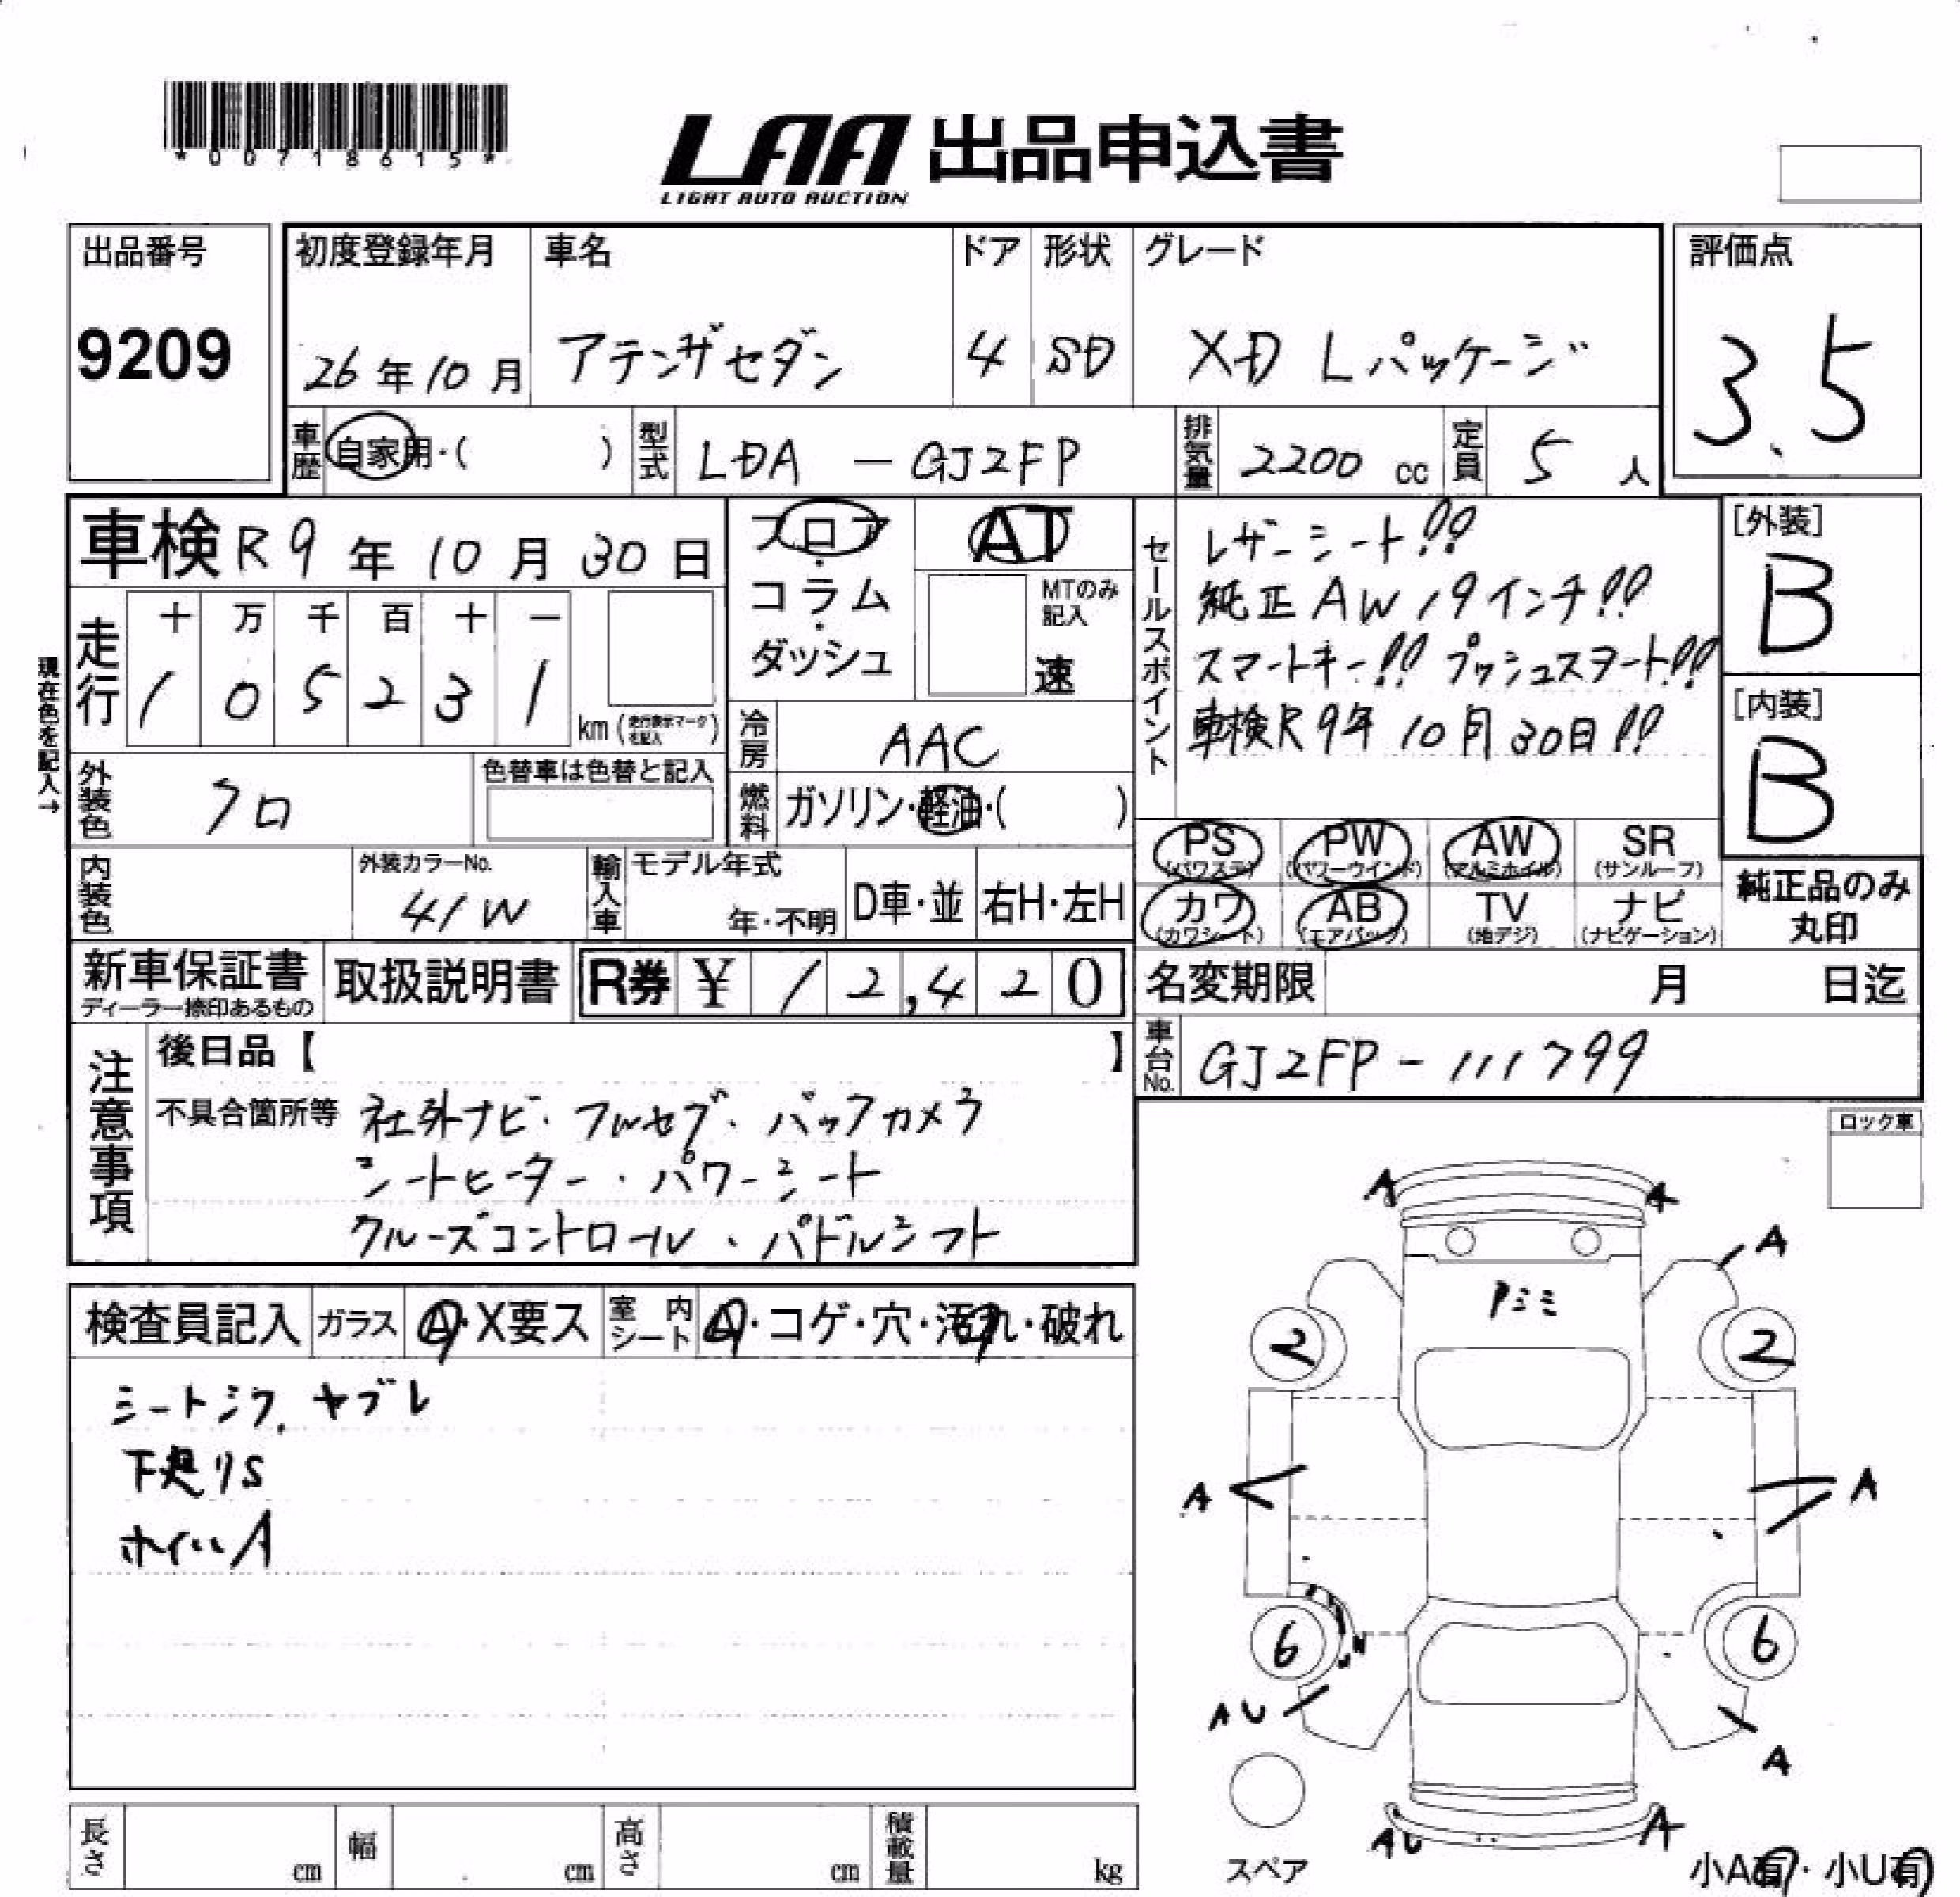 *00718615*
LAA 出品申込書
LIGHT AUTO AUCTION
出品番号
9209
初度登録年月
26年10月
車名
アテンザセダン
ドア
4
形状
SD
グレード
XD Lパッケージ
評価点
3.5
車歴
自家用・( )
型式
LDA - GJ2FP
排気量
2200 cc
定員
5 人
車検 R9年10月30日
現在色を記入→
走行
十 万 千 百 十 一
1 0 5 2 3 1
km (走行表示マークを記入)
フロア・コラム・ダッシュ
AT
MTのみ記入
速
冷房
AAC
燃料
ガソリン・軽油・( )
セールスポイント
レザーシート!!
純正AW19インチ!!
スマートキー!! プッシュスタート!!
車検R9年10月30日!!
[外装]
B
[内装]
B
外装色
クロ
色替車は色替と記入
内装色
外装カラーNo.
41W
輸入車
モデル年式
年・不明
D車・並
右H・左H
PS (パワステ)
PW (パワーウインド)
AW (アルミホイル)
SR (サンルーフ)
カワ (カワシート)
AB (エアバック)
TV (地デジ)
ナビ (ナビゲーション)
純正品のみ丸印
新車保証書
ディーラー捺印あるもの
取扱説明書
R券 ¥ 12,420
名変期限 月 日迄
車台No.
GJ2FP - 111799
注意事項
後日品【 】
不具合箇所等
社外ナビ・フルセグ・バックカメラ
シートヒーター・パワーシート
クルーズコントロール・パドルシフト
ロック車
検査員記入
ガラス
A・X要ス
室内シート
・コゲ・穴・汚れ・破れ
シートシワ、ヤブレ
下廻りS
ホイルA
A
A
A
Pミミ
2
2
A
A
6
6
AU
A
AU
A
スペア
小A有・小U有
長さ cm
幅 cm
高さ cm
積載量 kg